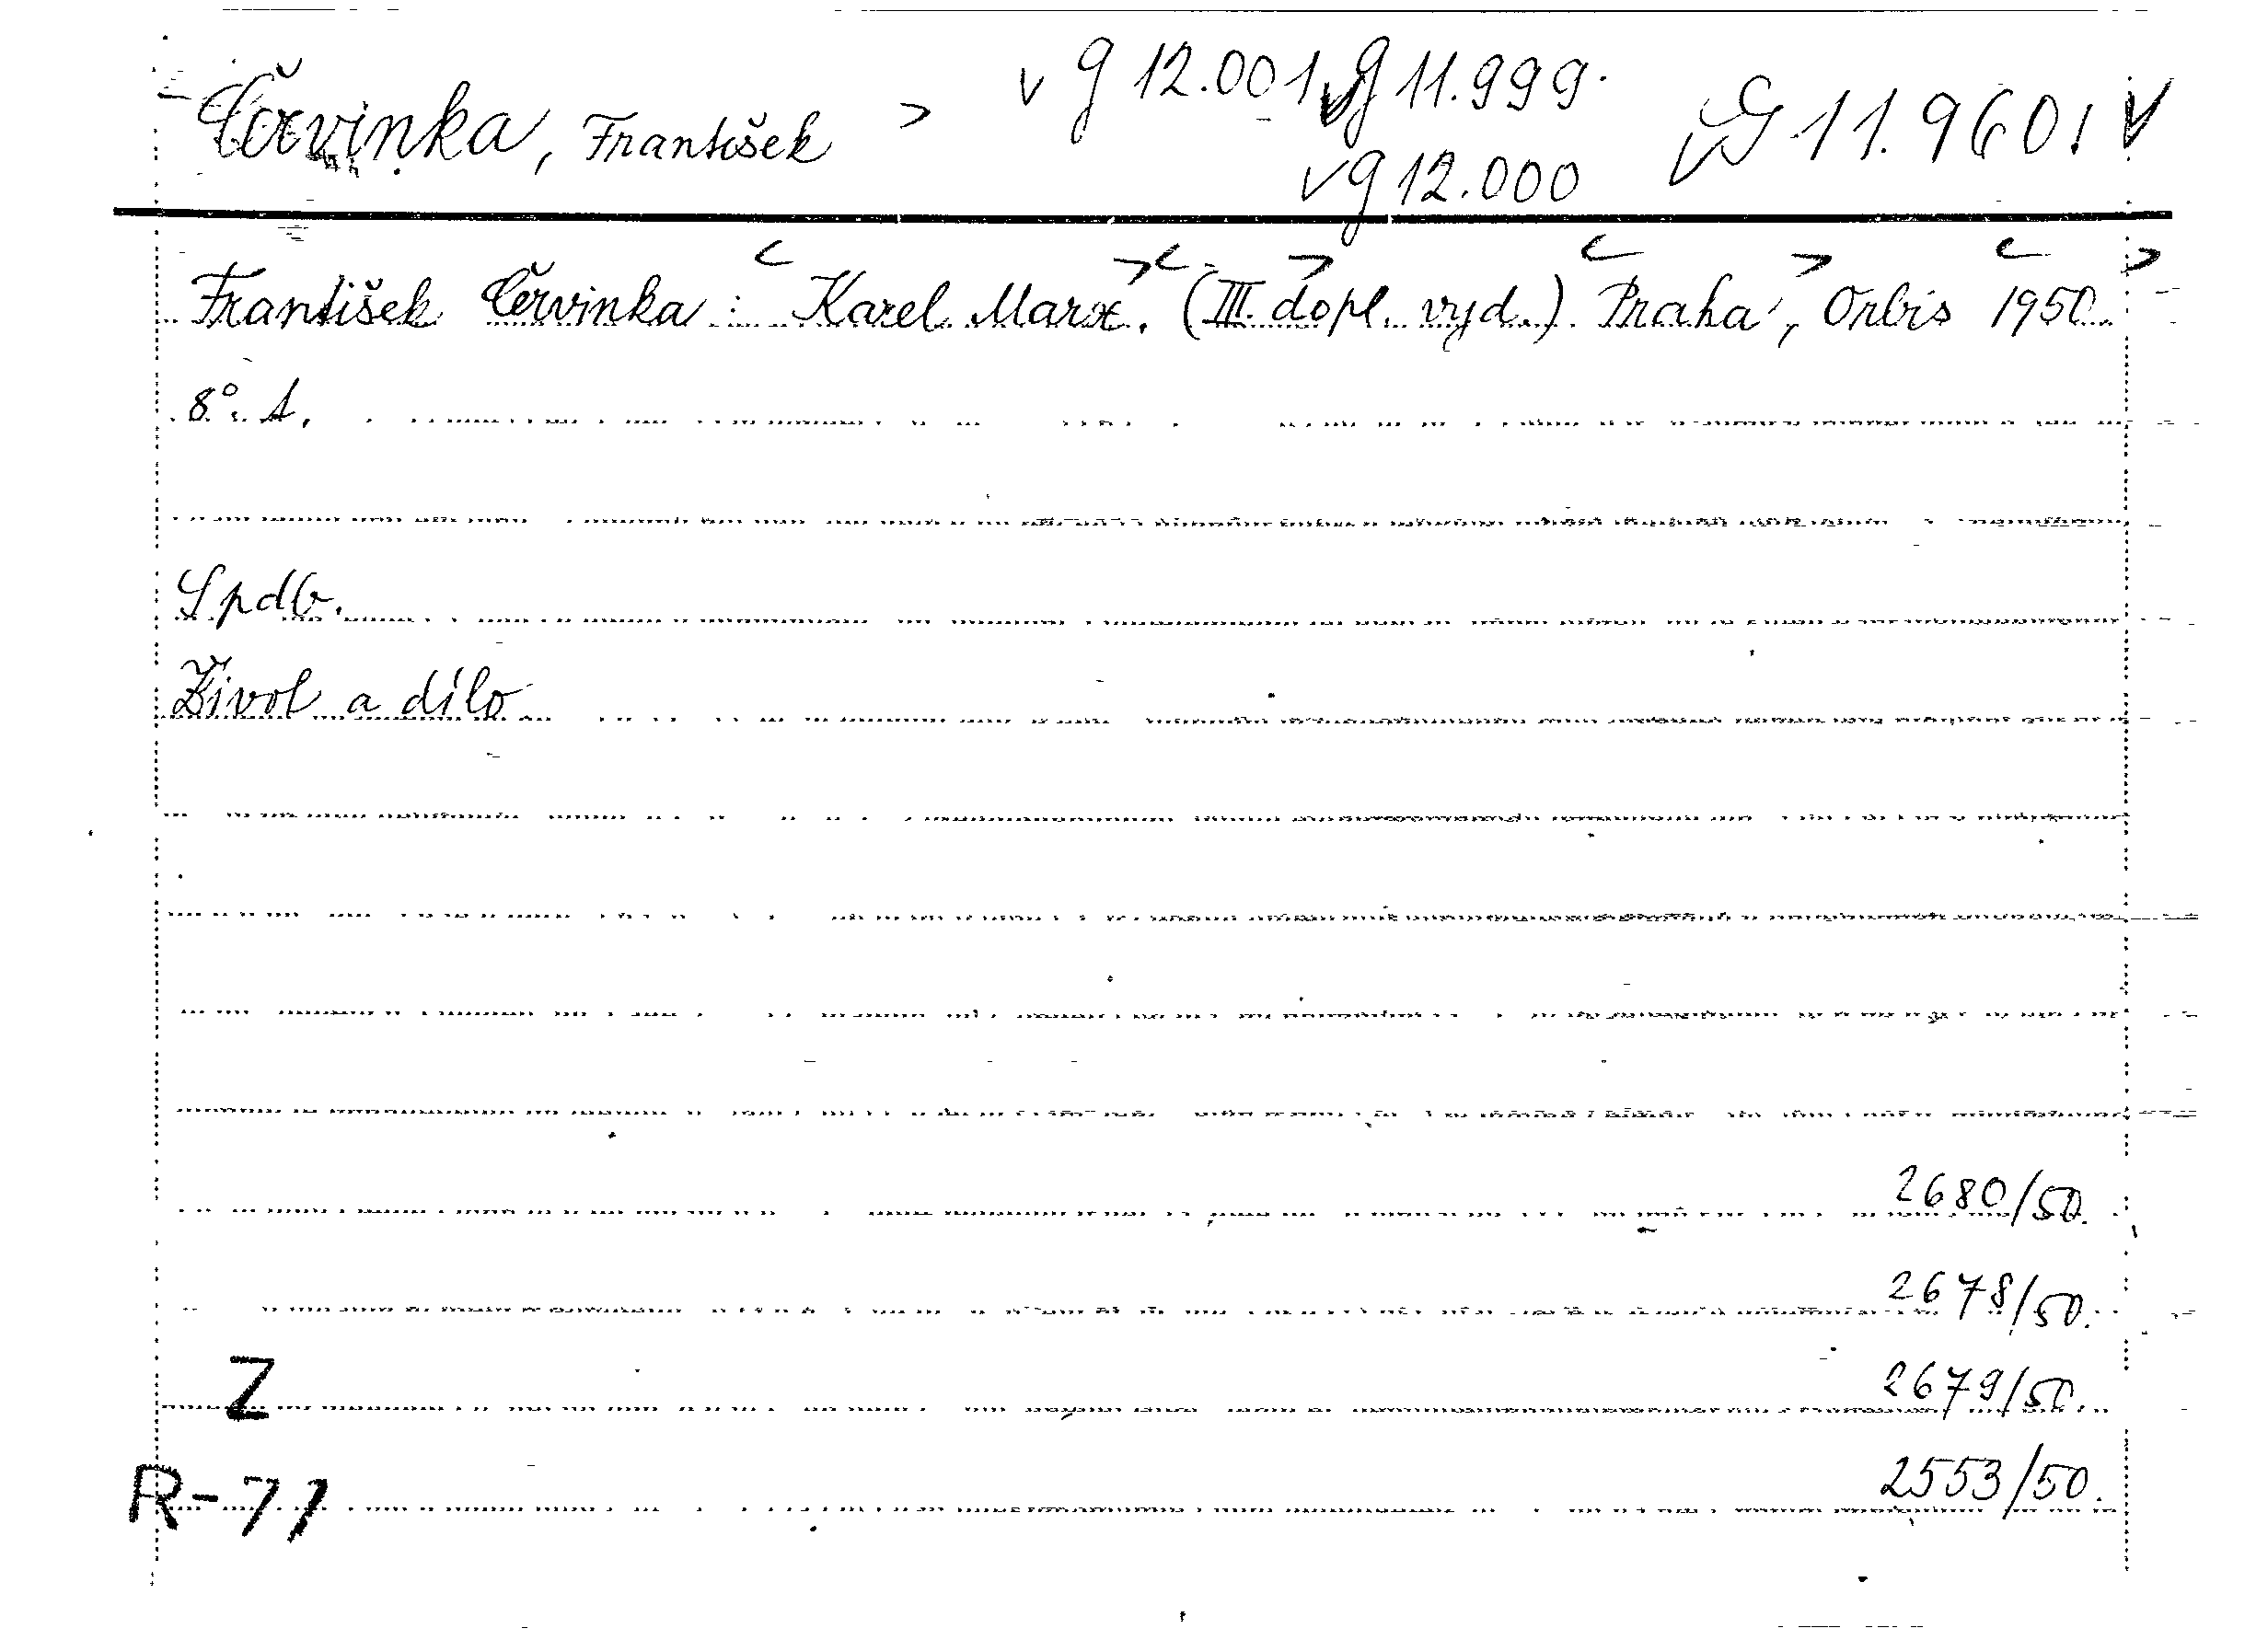 Červinka, František > v g 12.001 v g 11.999. v G 11.960! v
v g 12.000
František Červinka: Karel Marx. (III. dopl. vyd.) Praha, Orbis 1950.
8°. s.
Spdb.
Život a dílo
2680/50.
2678/50.
Z 2679/50.
R-71 2553/50.